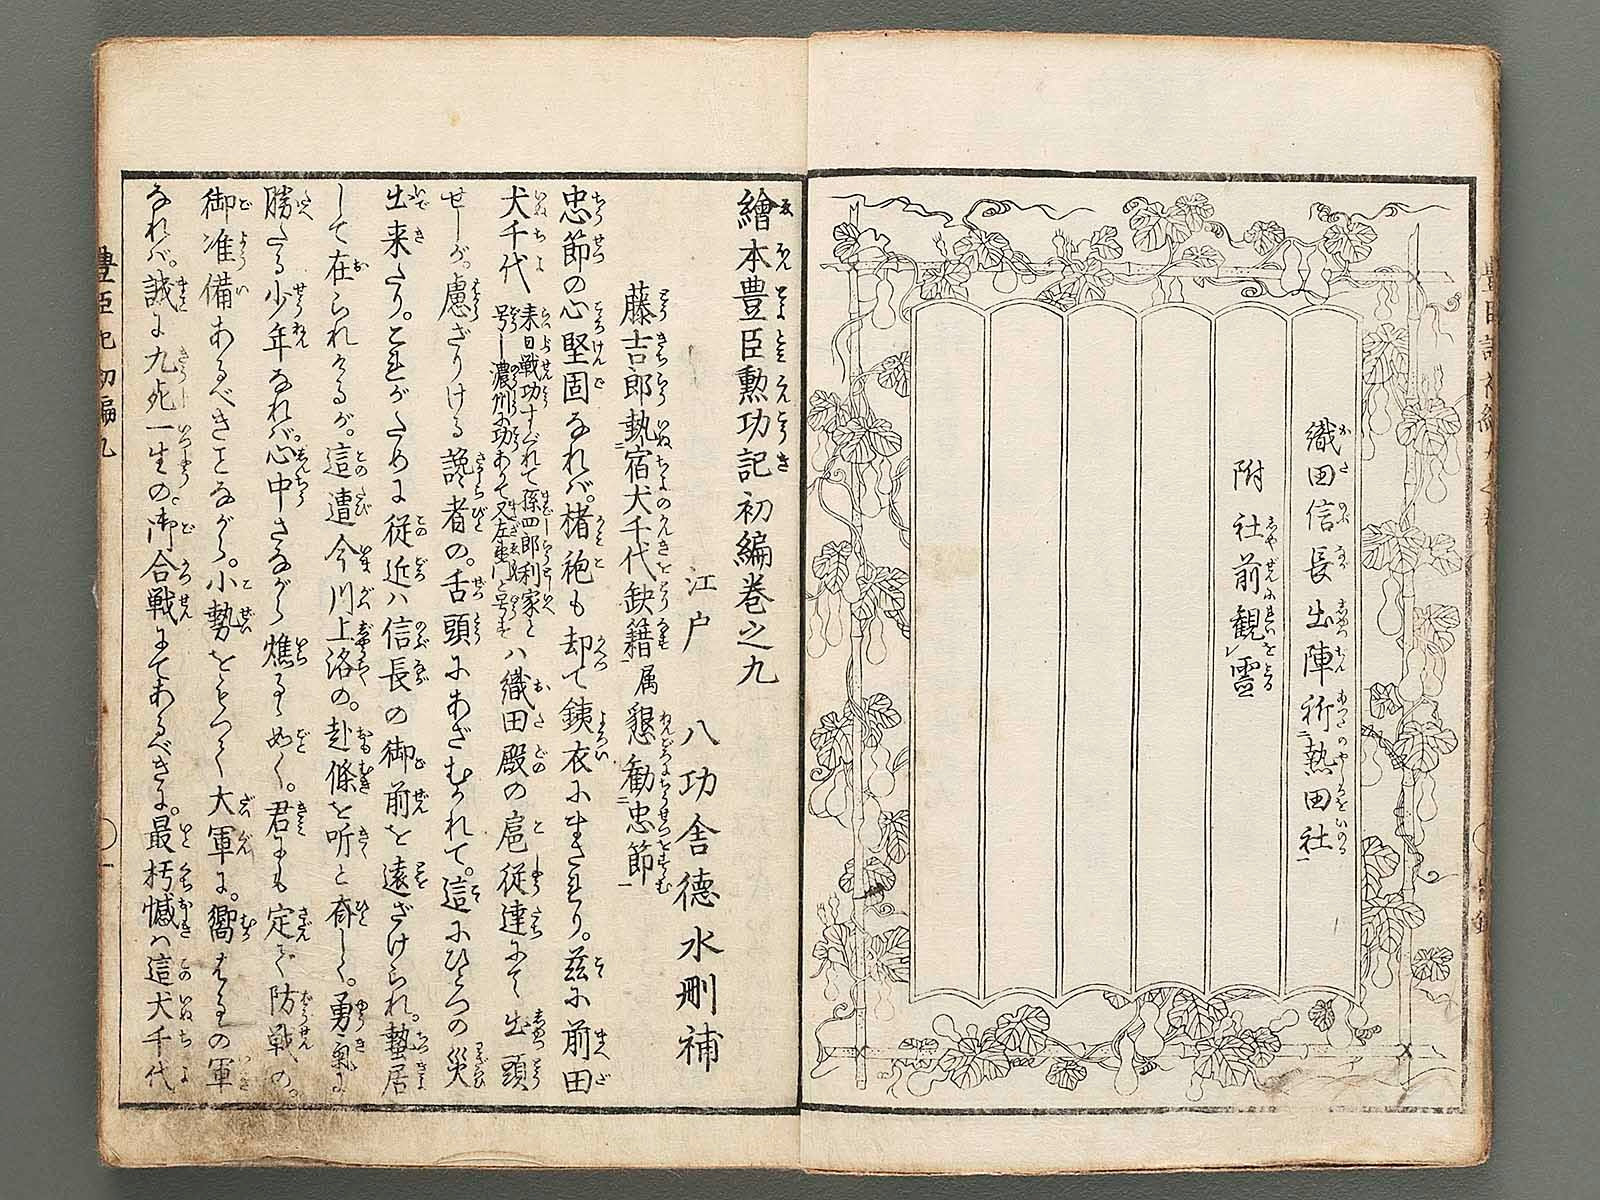 織田信長出陣祈熱田社
附社前観霊
繪本豊臣勲功記初編巻之九
江戸 八功舎徳水刪補
藤吉郎執宿犬千代缺籍属懇勧忠節
忠節の心堅固なれバ。楮袍も却て銕衣にまされり。茲に前田
犬千代 末日戦功すぐれて孫四郎利家と号し濃州に功ありて又左衛門と号す ハ織田殿の扈従達にて出頭
せしが。慮ざりける讒者の。舌頭にあざむかれて。這にひとつの災
出来たり。これがために従近ハ信長の御前を遠ざけられ。蟄居
して在られけるが。這遭今川上洛の。赴條を听と斉しく。勇氣に
勝たる少年なれバ。心中さながら燋るゝ如く。君にも定て防戦の。
御准備あるべきことながら。小勢をもつて大軍に。嚮はるゝの軍
なれバ。誠に九死一生の。御合戦にてあるべきに。最朽憾ハ這犬千代
豊臣記初編九